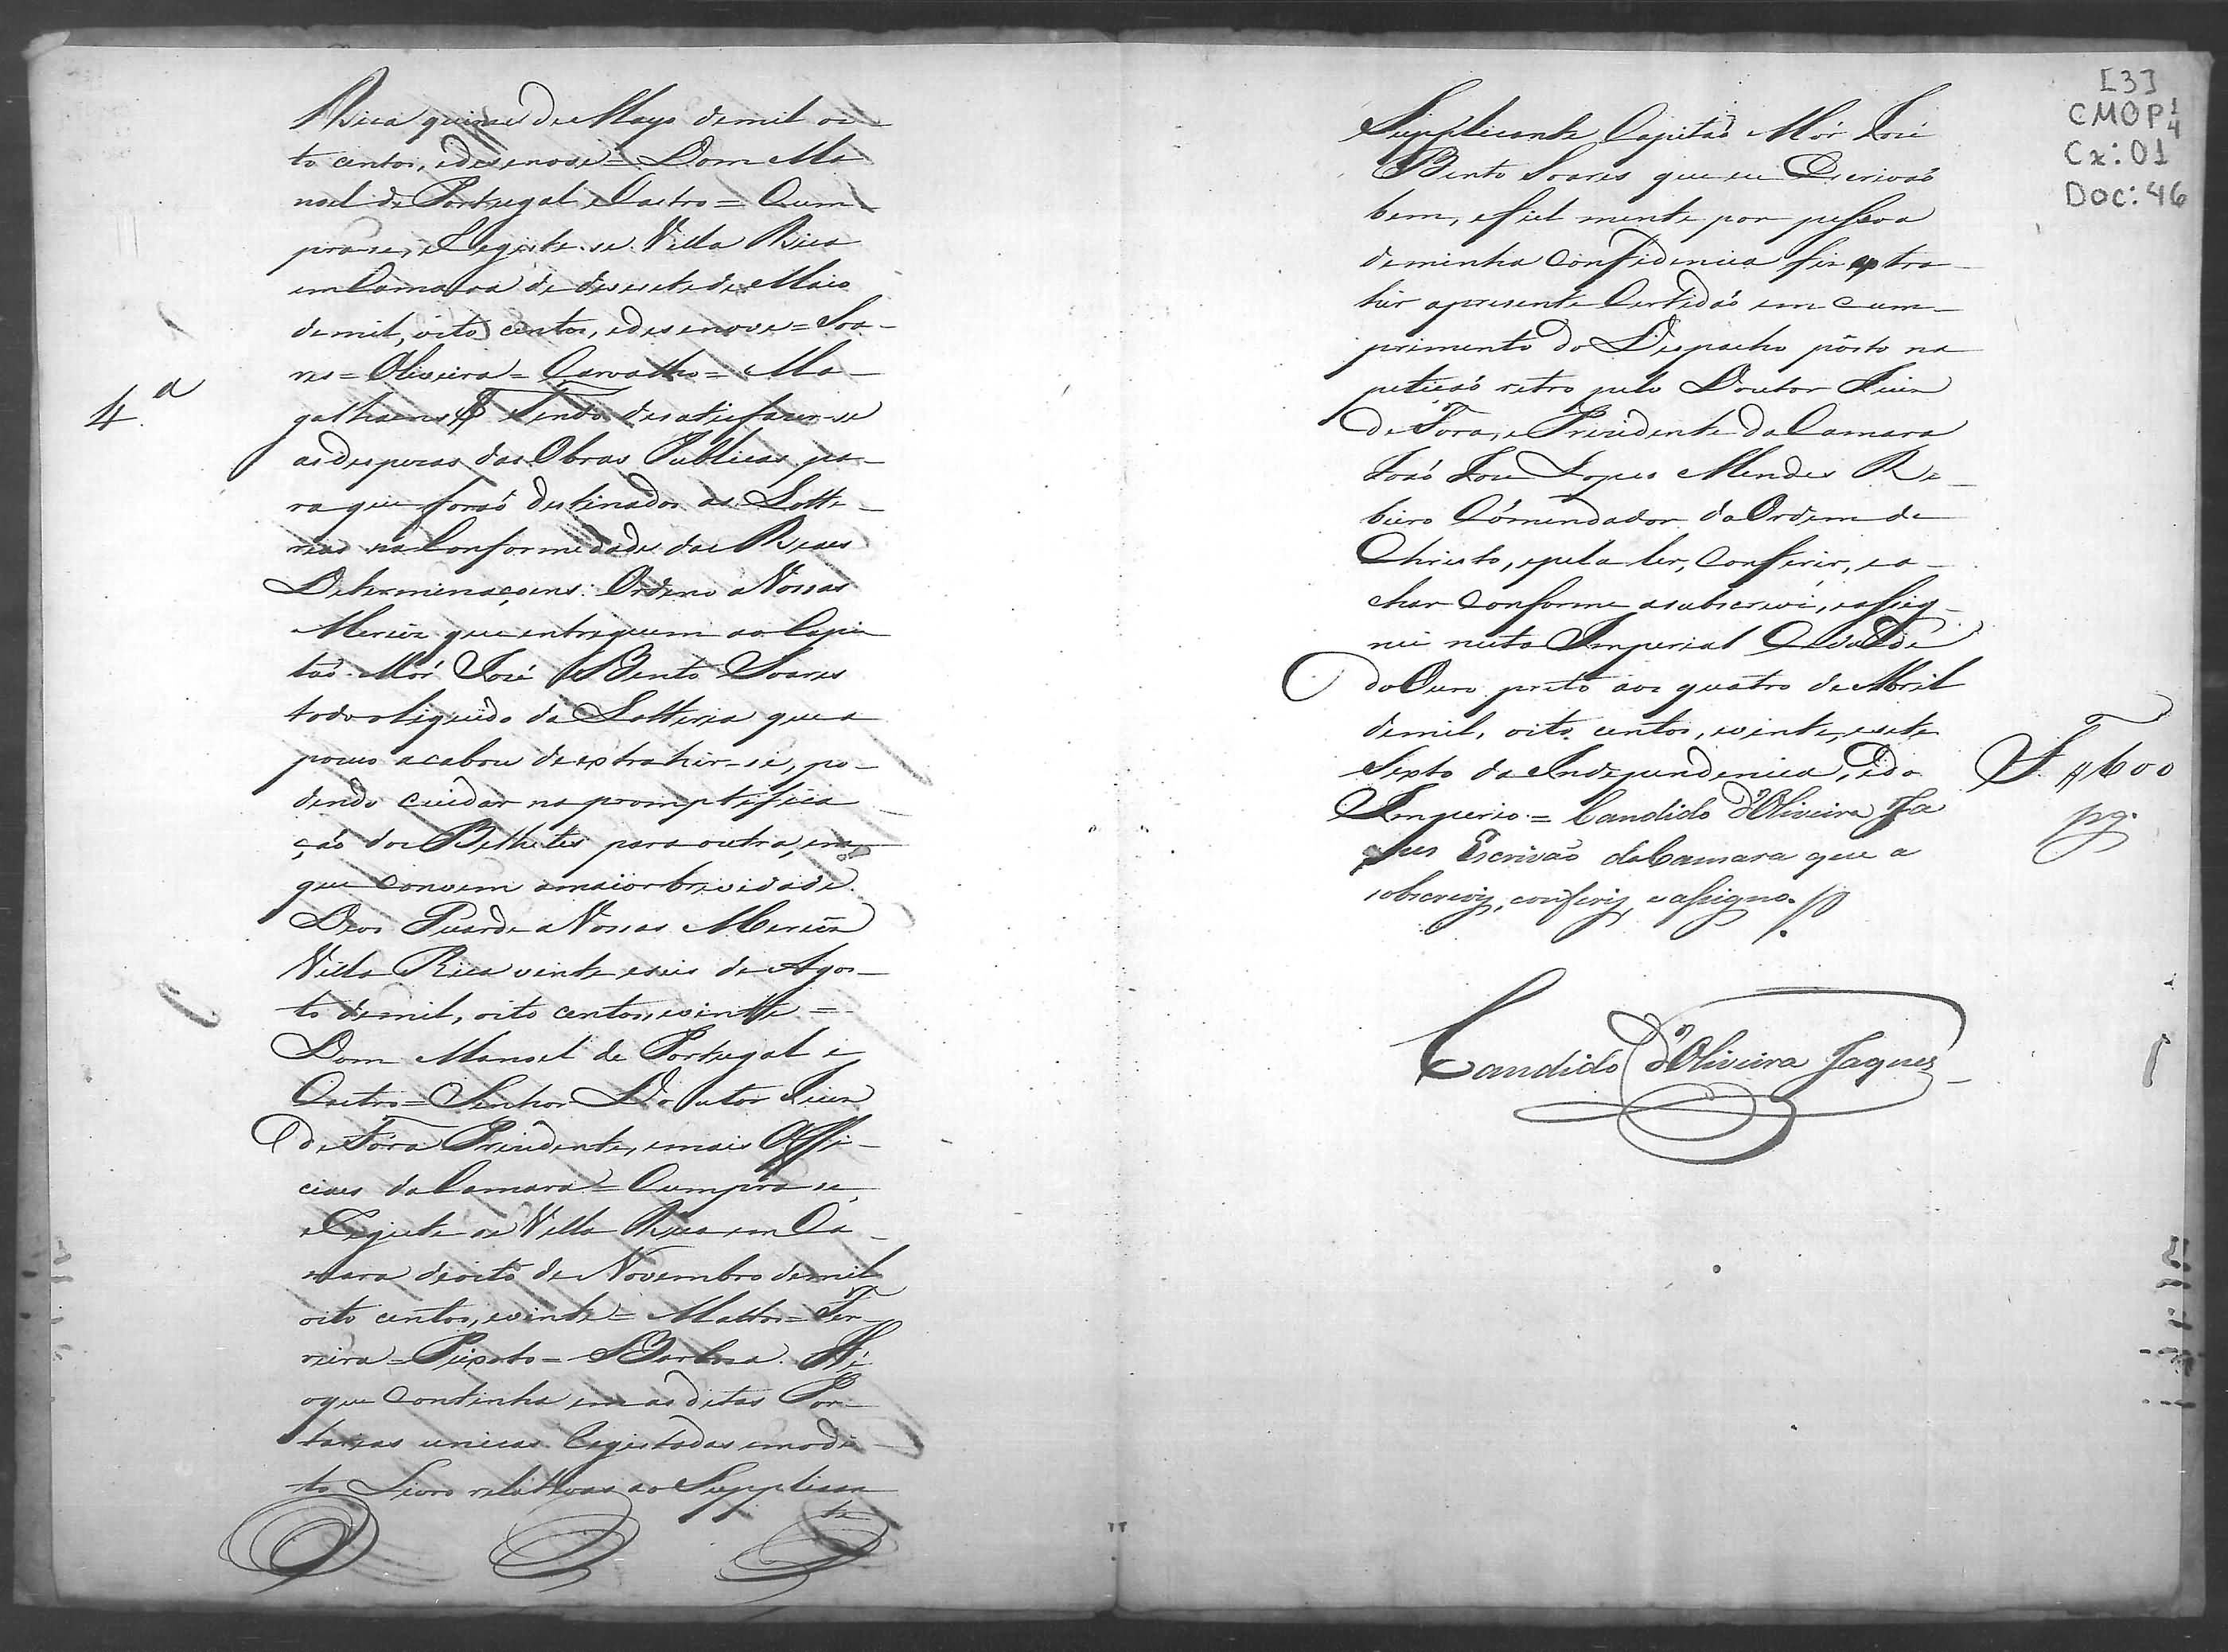 Rica quinze de Mayo demil oi-
to centos, edesenove = Dom Ma
noel de Portugal e Castro = Cum-
prase, e Registe-se Villa Rica
em Camara de desesete de Maio
demil, oito centos, edesenove = Soa-
res = Oliveira = Carvalho = Ma-
4.a
galhaens Tendo desatisfazer-se
asdespezas das Obras Publicas pa-
ra que foraõ destinados as Lotte-
rias na Conformidade das Reaes
Determinaçoens: Ordeno a Vossas
Mercês que entreguem ao Capi
taõ Mór José Bento Soares
todooliquido da Lotteria que a
pouco acabou deextrahir-se, po-
dendo cuidar na promptifica
çaõ dos Bilhetes para outra, em
que convem amaior brevidade.
Deos Guarde a Vossas Mercês
Villa Rica vinte eseis de Agos-
to demil, oito centos, evinte =
Dom Manoel de Portugal e
Castro = Senhor Doutor Juiz
de Fóra Prezidente, emais Offi-
ciaes da Camara = Cumpra se,
eRegiste se Villa Rica em Ca-
mara deoito de Novembro demil
oito centos, evinte = Mattos = Fer-
reira = Peixoto = Barboza. Hé
oque Continha em as ditas Por-
tarias unicas Registadas emodi-
to Livro relativas ao Supplican
te
[3]
CMOP 1/4
Cx: 01
Doc: 46
Supplicante Capitaõ Mór José
Bento Soares que eu Escrivaõ
bem, efiel mente por pessoa
deminha Confidencia fiz extra-
hir apresente Certidaõ em cum-
primento do Despacho pôsto na
petiçaõ retro pelo Doutor Juiz
de Fora, e Prezidente da Camara
Joaõ José Lopes Mendes Ri-
beiro Cómendador da Ordem de
Christo, epela ler, Conferir, ea-
char Conforme asubscrevi, eassig-
nei nesta Imperial Cidade
do Ouro preto aos quatro de Abril
demil, oito centos, evinte, esete
Sexto da Independencia, edo
Imperio = Candido d'Oliveira Ja
ques Escrivão da Camara que a
sobscrevy, confery, eassigno.
$600
pg.
Candido d'Oliveira Jaques